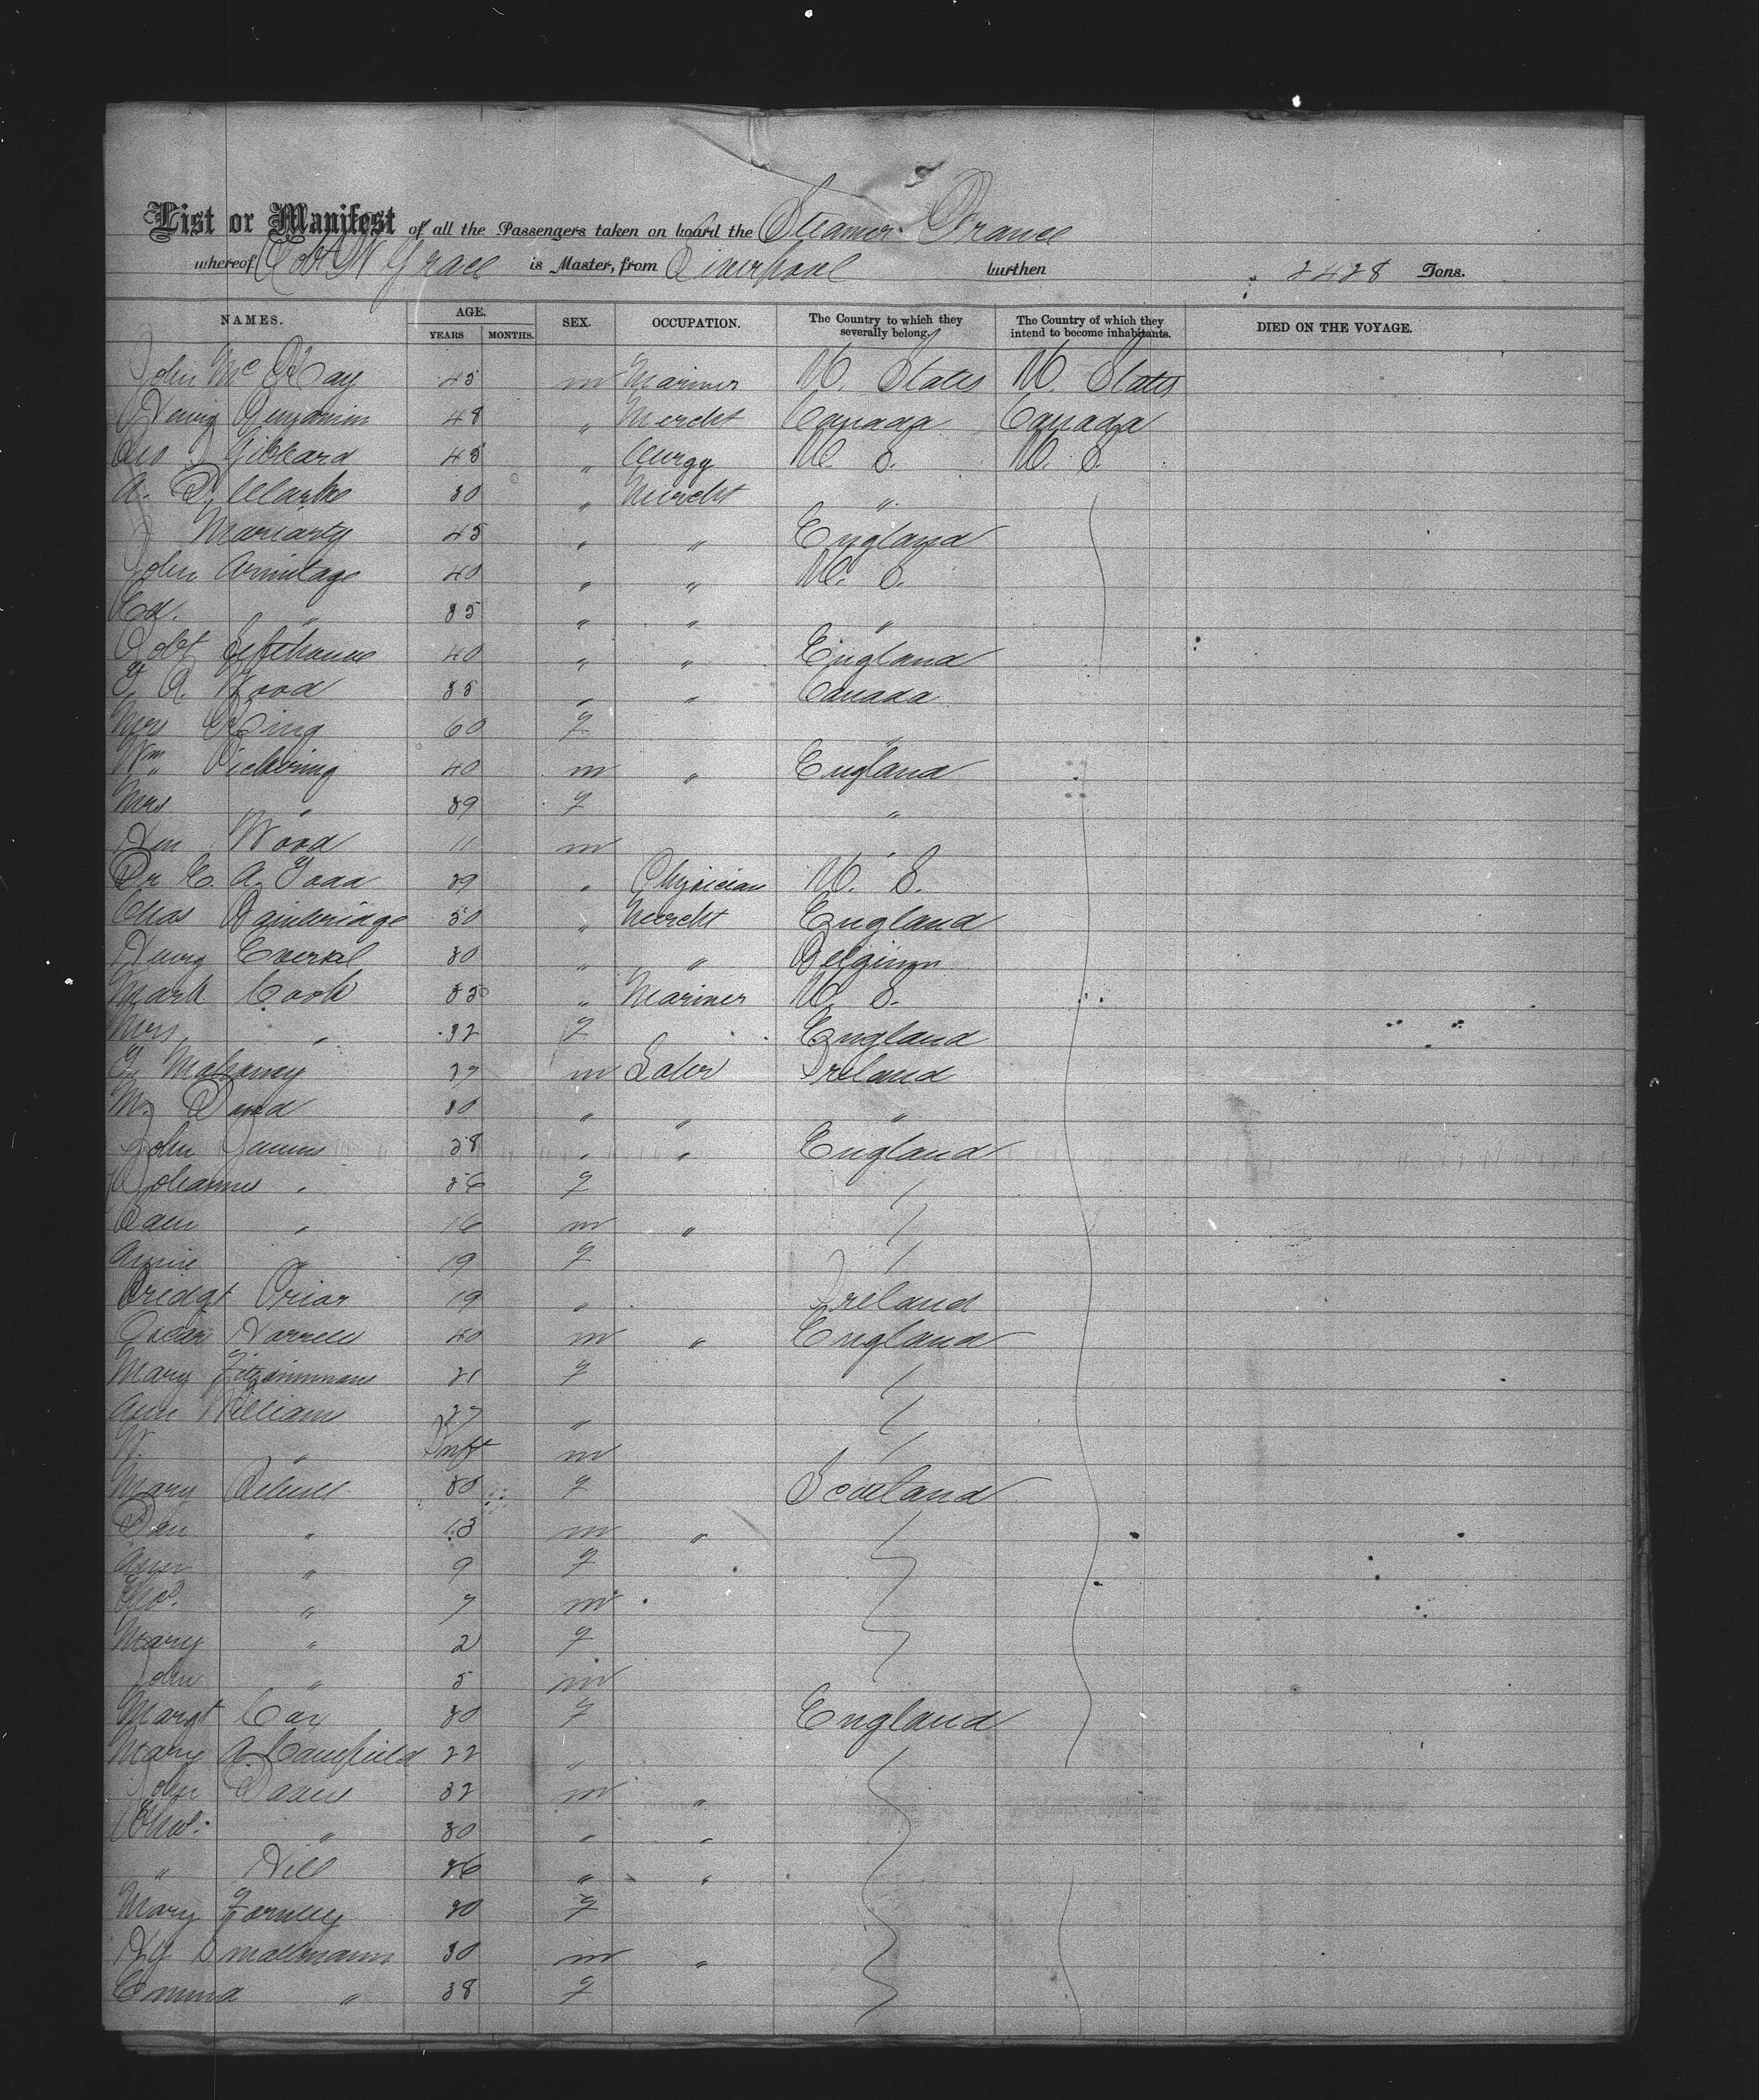 List or Manifest of all the Passengers taken on board the Steamer France
whereof Robt W Grace is Master, from Liverpool burthen 2428 Tons.
NAMES. AGE. SEX. OCCUPATION. The Country to which they severally belong. The Country of which they intend to become inhabitants. DIED ON THE VOYAGE.
YEARS MONTHS.
John McKay 45 m Mariner U. States U. States
Henry Benjamin 48 " Mercht Canada Canada
Geo J Gibbard 45 " Clergy U. S. U. S.
A. D. Clarke 30 " Mercht "
J Moriarty 45 " " England
John Armitage 40 " " U. S.
Ed. " 35 " " "
Robt 40 " " England
T. A. Wood 35 " " Canada
Mrs King 60 f "
Wm Pickering 40 m " England
Mrs " 39 f "
Wood 11 m "
Dr C. A. Todd 39 " Physician U. S.
Chas Bainbridge 50 " Mercht England
Henry 30 " " Belgium
Mark Cook 35 " Mariner U. S.
Mrs " 32 f England
T. Mahoney 27 m Labr Ireland
M. 30 " " "
John 38 " " England
Johanna " 36 f
Sam " 16 m "
Annie " 19 f
Bridgt Priar 19 " Ireland
Oscar 40 m " England
Mary Fitzsimmons 21 f
Ann William 27 "
W. " Inft m
Mary 30 f Scotland
Dan " 13 m "
Ann " 9 f
Thos. " 7 m
Mary " 2 f
John " 5 m
Margt Cox 30 f England
Mary A Caulfield 22 "
John Davis 32 m "
Thos. " 30 " "
" Hill 26 " "
Mary 20 f
Hy Smallmann 30 m "
Emma " 38 f